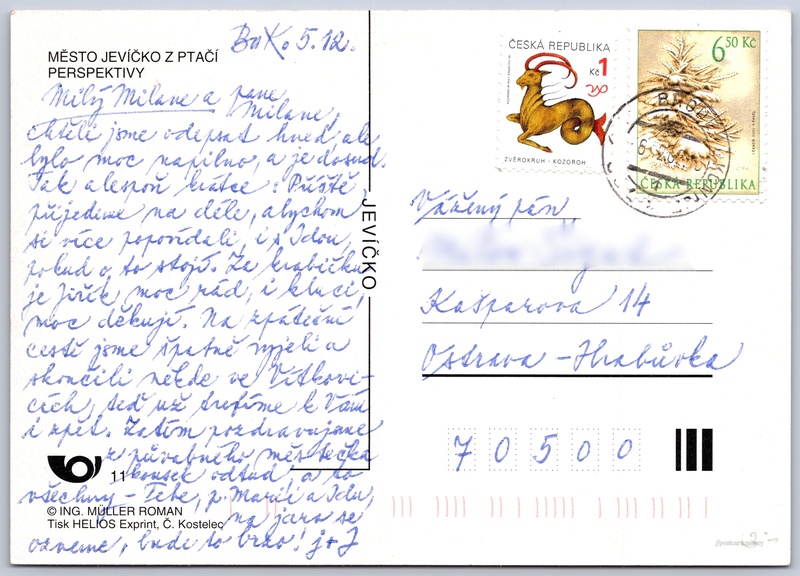 MĚSTO JEVÍČKO Z PTAČÍ
PERSPEKTIVY
BnK. 5.12.
Milý Milane a pane
Milane,
chtěli jsme odepsat hned, ale
bylo moc napilno, a je dosud.
Tak alespoň krátce: Příště
přijedeme na déle, abychom
si více popovídali, i s Idou,
pokud o to stojí. Za krabičku
je Jiřík moc rád, i kluci,
moc děkují. Na zpáteční
cestě jsme špatně vyjeli a
skončili někde ve Vítkovi-
cích, teď už trefíme k Vám
i zpět. Zatím pozdravujeme
z půvabného městečka
kousek odtud, a to
všechny - Tebe, p. Marii a Idu,
na jaro se
ozveme, bude to brzo! j+J
11
© ING. MÜLLER ROMAN
Tisk HELIOS Exprint, Č. Kostelec
JEVÍČKO
ČESKÁ REPUBLIKA
Kč 1
ZVĚROKRUH - KOZOROH
6 50 Kč
ČESKÁ REPUBLIKA
Vážený pán
Kašparova 14
Ostrava - Hrabůvka
7 0 5 0 0